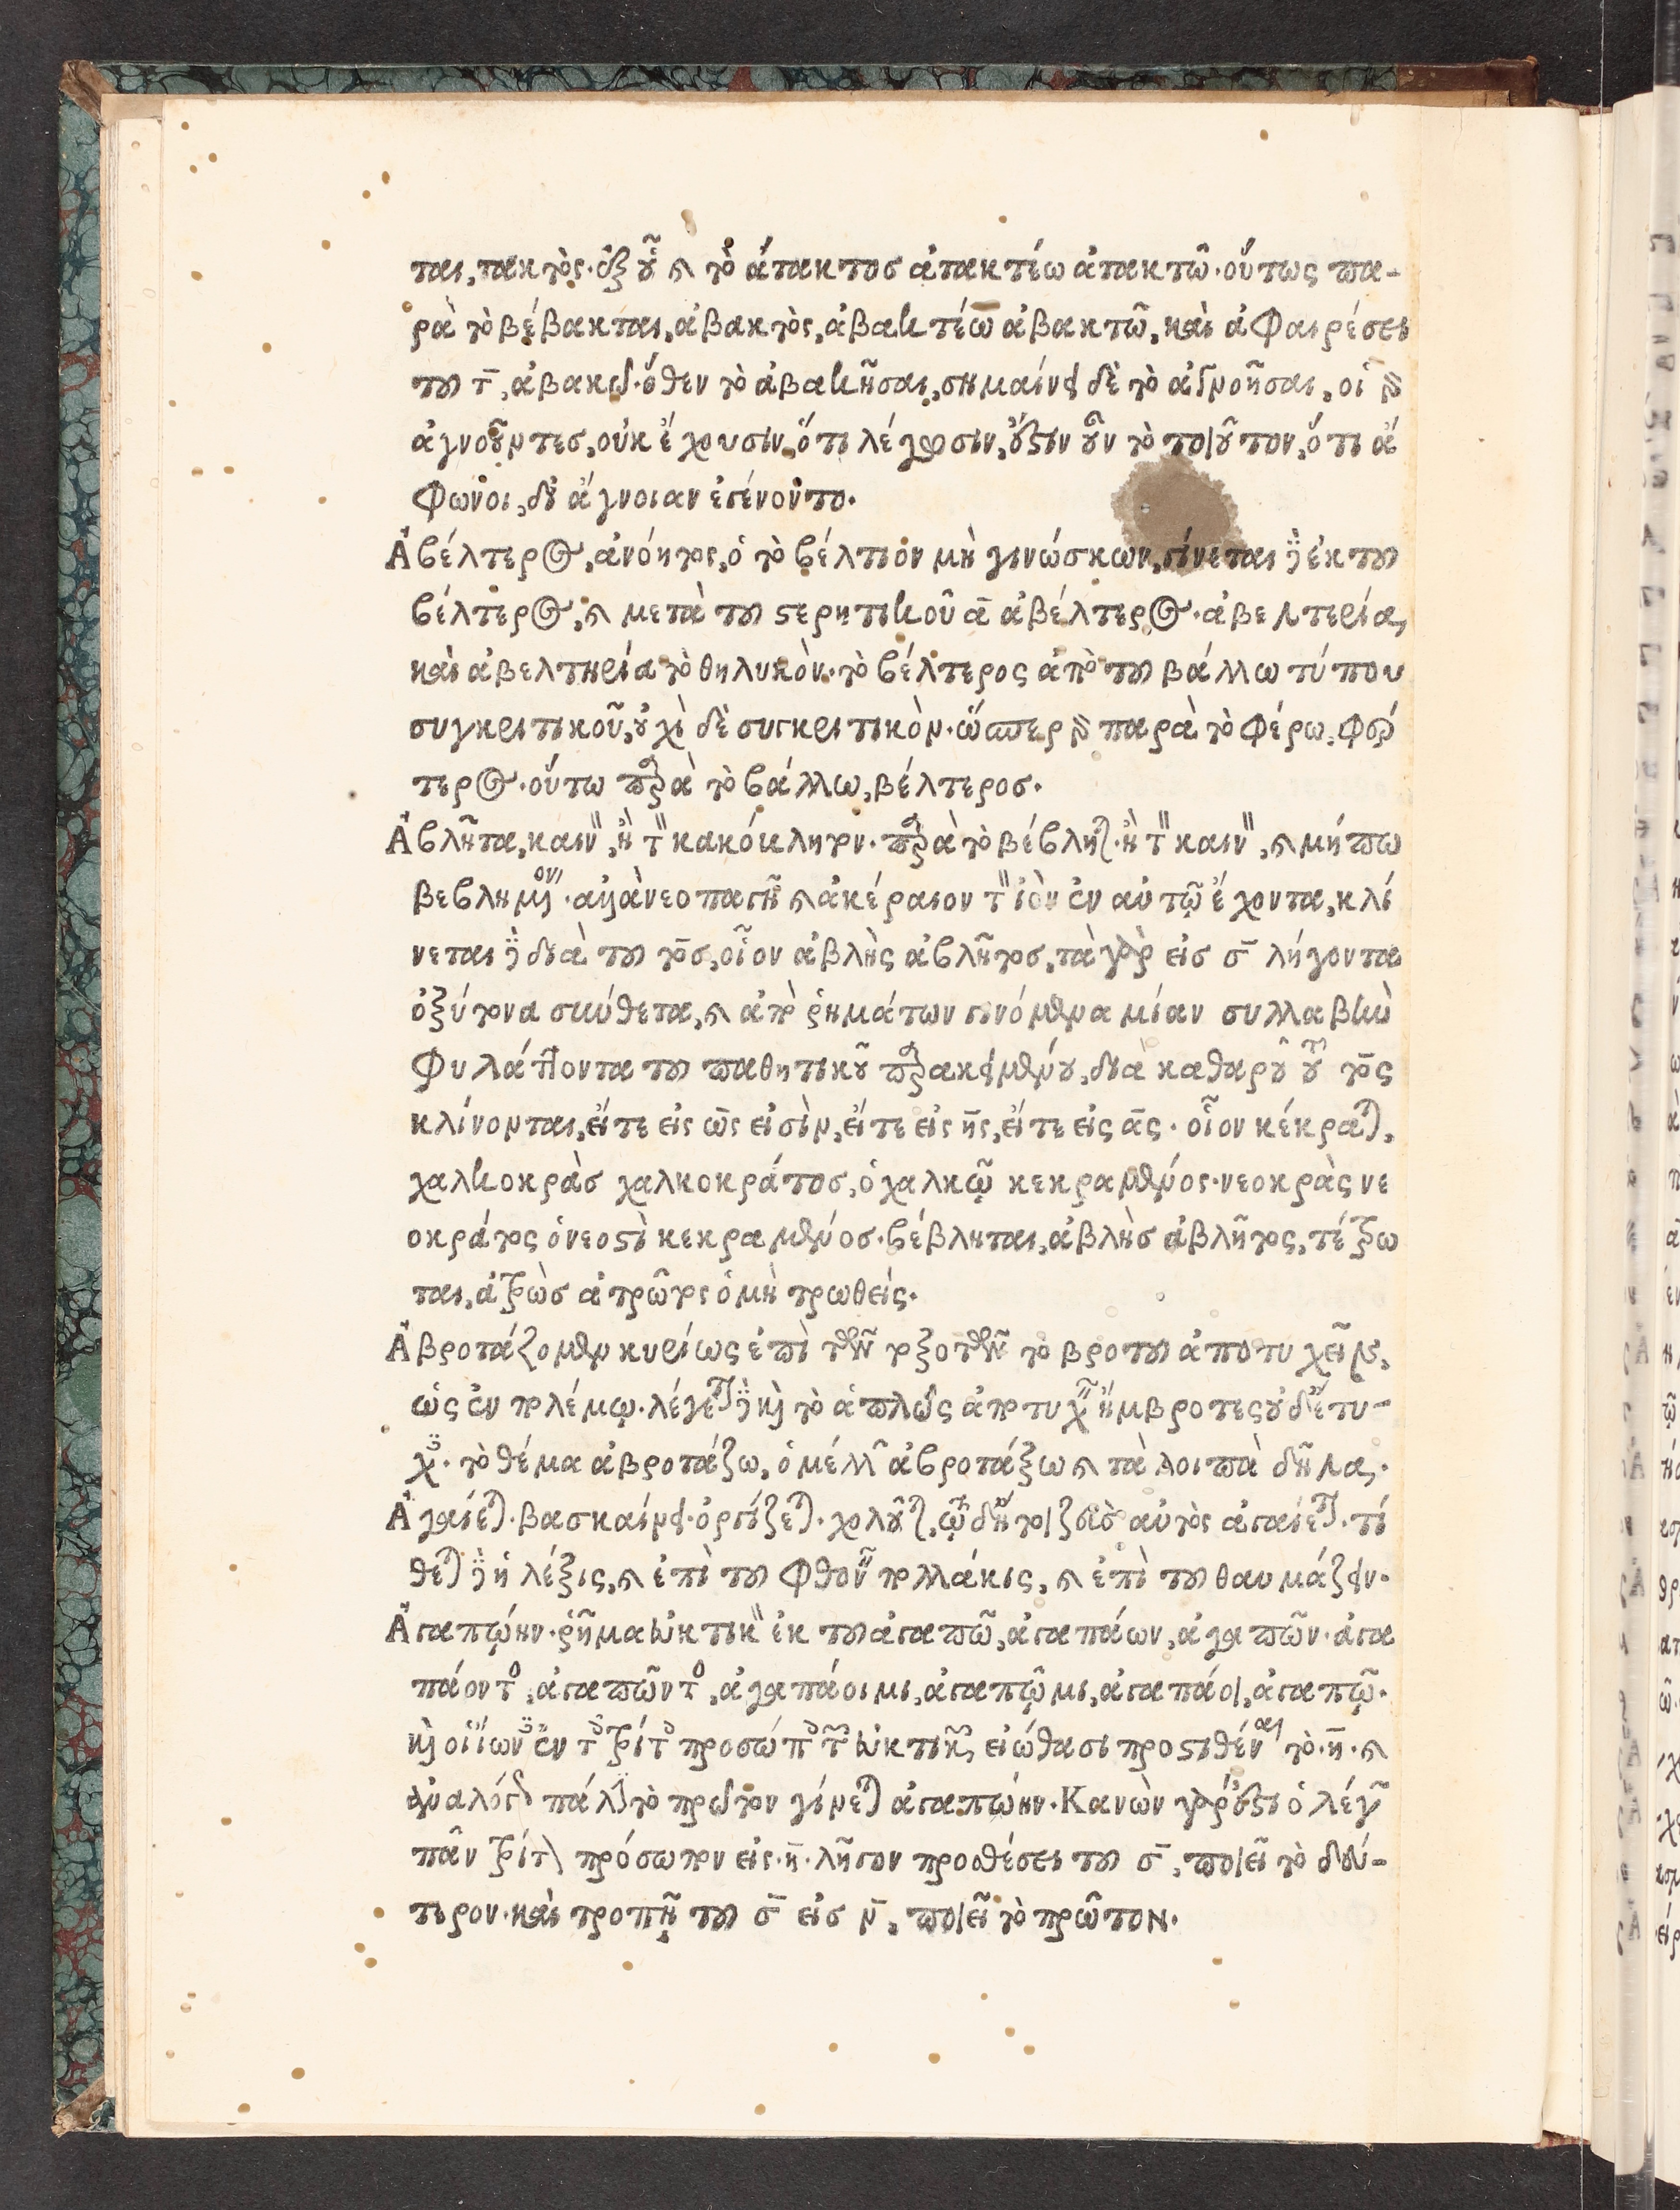 ται, τακτὸς. ἐξ οὗ καὶ τὸ ἄτακτος ἀτακτέω ἀτακτῶ. οὕτως πα-
ρὰ τὸ βέβακται, ἀβακτὸς, ἀβακτέω ἀβακτῶ, καὶ ἀφαιρέσει
τοῦ τ̄, ἀβακῶ. ὅθεν τὸ ἀβακῆσαι, σημαίνει δὲ τὸ ἀγνοῆσαι, οἱ γὰρ
ἀγνοοῦντες, οὐκ ἔχουσιν, ὅτι λέγωσιν, ἔστιν οὖν τὸ τοιοῦτον, ὅτι ἄ
φωνοι, δι' ἄγνοιαν ἐγένοντο.
Ἀβέλτερος, ἀνόητος, ὁ τὸ βέλτιον μὴ γινώσκων, γίνεται δὲ ἐκ τοῦ
βέλτερος, καὶ μετὰ τοῦ στερητικοῦ ᾱ ἀβέλτερος. ἀβελτερία,
καὶ ἀβελτηρία τὸ θηλυκὸν. τὸ βέλτερος ἀπὸ τοῦ βάλλω τύπου
συγκριτικοῦ, οὐχὶ δὲ συγκριτικὸν. ὥσπερ γὰρ παρὰ τὸ φέρω, φέρ
τερος. οὕτω παρὰ τὸ βάλλω, βέλτερος.
Ἀβλῆτα, καιν", ἢ τ" κακόκληρον. παρὰ τὸ βέβληται. ἢ τ" καιν", καὶ μήπω
βεβλημένον. ἀλλὰ νεοπαγῆ καὶ ἀκέραιον τ" ἰὸν ἐν αὐτῷ ἔχοντα, κλί
νεται δὲ διὰ τοῦ το̄ς, οἷον ἀβλὴς ἀβλῆτος, τὰ γὰρ εἰς ς̄ λήγοντα
ὀξύτονα σύνθετα, καὶ ἀπὸ ῥημάτων γινόμενα μίαν συλλαβὴν
φυλάττοντα τοῦ παθητικοῦ παρακειμένου, διὰ καθαροῦ τοῦ το̄ς
κλίνονται, εἴτε εἰς ω̄ς εἰσὶν, εἴτε εἰς η̄ς, εἴτε εἰς ᾱς. οἷον κέκραται,
χαλκοκρὰς χαλκοκράτος, ὁ χαλκῷ κεκραμένος. νεοκρὰς νε
οκράτος ὁ νεοστὶ κεκραμένος. βέβληται, ἀβλὴς ἀβλῆτος, τέτρω
ται, ἀτρὼς ἀτρῶτος ὁ μὴ τρωθείς.
Ἀβροτάξομεν κυρίως ἐπὶ τῶν τοξοτῶν τὸ βροτοῦ ἀποτυχεῖν,
ὡς ἐν πολέμῳ. λέγεται δὲ καὶ τὸ ἁπλῶς ἀποτυχεῖν ἤμβροτες οὐδ' ἔτυ-
χες. τὸ θέμα ἀβροτάζω, ὁ μέλλων ἀβροτάξω καὶ τὰ λοιπὰ δῆλα.
Ἀγαίεται. βασκαίνει. ὀργίζεται. χολοῦται, ᾧ δὴ τοι ζεὺς αὐτὸς ἀγαίεται. τί
θεται δὲ ἡ λέξις, καὶ ἐπὶ τοῦ φθονεῖν πολλάκις, καὶ ἐπὶ τοῦ θαυμάζειν.
Ἀγαπῴην. ῥῆμα εὐκτικ" ἐκ τοῦ ἀγαπῶ, ἀγαπάων, ἀγαπῶν. ἀγα
πάοντος, ἀγαπῶντος, ἀγαπάοιμι, ἀγαπῷμι, ἀγαπάοι, ἀγαπῷ.
καὶ οἱ ἴωνες ἐν τῷ τρίτῳ προσώπῳ τῶν εὐκτικῶν εἰώθασι προστιθέναι τὸ. η̄. καὶ
ἀναλόγως πάλιν τὸ πρῶτον γίνεται ἀγαπῴην. Κανὼν γάρ ἐστι ὁ λέγων
πᾶν τρίτον πρόσωπον εἰς. η̄. λῆγον προσθέσει τοῦ ς̄, ποιεῖ τὸ δεύ-
τερον. καὶ τροπῇ τοῦ ς̄ εἰς ν̄, ποιεῖ τὸ πρῶτον.